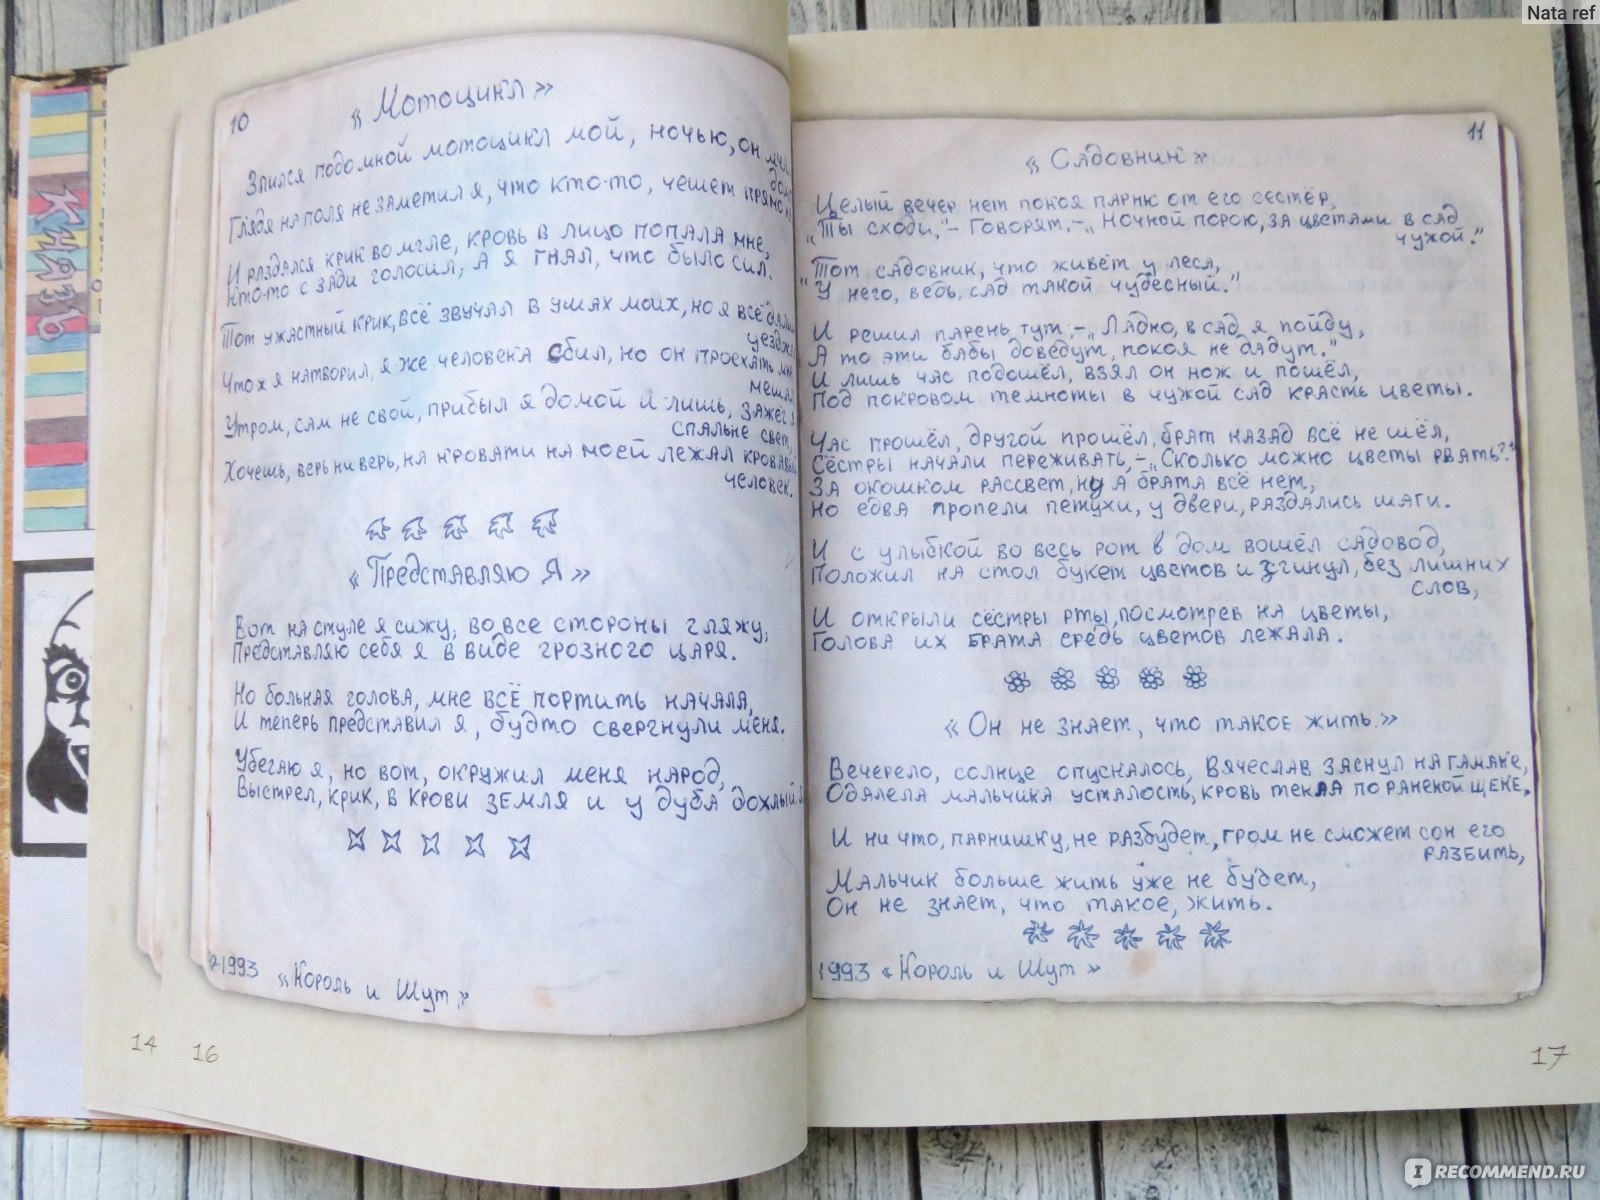 Nata ref
КНЯЗЬ
10
«Мотоцикл»
Злился подо мной мотоцикл мой, ночью, он
Глядя на поля не заметил я, что кто-то, чешет
И раздался крик во мгле, кровь в лицо попала мне,
Кто-то с зади голосил, А я гнал, что было сил.
Тот ужастный крик, всё звучал в ушах моих, но я всё
Что ж я натворил, я же человека сбил, но он проехать мне
Утром, сам не свой, прибыл я домой и лишь, зажёг
спальне свет,
Хочешь, верь ни верь, на кровати на моей лежал кровавый
человек.
«Представляю Я»
Вот на стуле я сижу, во все стороны гляжу,
Представляю себя я в виде грозного царя.
Но больная голова, мне всё портить начала,
И теперь представил я, будто свергнули меня.
Убегаю я, но вот, окружил меня народ,
Выстрел, крик, в крови земля и у дуба дохлый я
1993 «Король и Шут»
14 16
11
«Садовник»
Целый вечер нет покоя парню от его сестёр,
"Ты сходи,"- Говорят,-„Ночной порою, за цветами в сад
чужой."
Тот садовник, что живёт у леса,
"У него, ведь, сад такой чудесный."
И решил парень тут,-„Ладно, в сад я пойду,
А то эти бабы доведут, покоя не дадут."
И лишь час подошёл, взял он нож и пошёл,
Под покровом темноты в чужой сад красть цветы.
Час прошёл, другой прошёл, брат назад всё не шёл,
Сёстры начали переживать,-„Сколько можно цветы рвать?"
За окошком рассвет, ну а брата всё нет,
Но едва пропели петухи, у двери, раздались шаги.
И с улыбкой во весь рот в дом вошёл садовод,
Положил на стол букет цветов и сгинул, без лишних
слов,
И открыли сёстры рты, посмотрев на цветы,
Голова их брата средь цветов лежала.
«Он не знает, что такое жить.»
Вечерело, солнце опускалось, Вячеслав заснул на гамаке,
Одалела мальчика усталость, кровь текла по раненой щеке,
И ни что, парнишку, не разбудет, гром не сможет сон его
разбить,
Мальчик больше жить уже не будет,
Он не знает, что такое, жить.
1993 «Король и Шут»
17
IRECOMMEND.RU